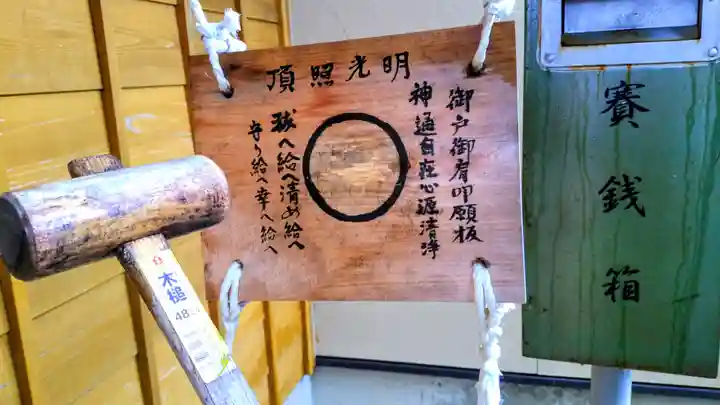 頂照光明
御戸御肩叩願板
神通自在心源清浄
祓へ給へ清め給へ
守り給へ幸へ給へ
賽銭箱
木槌
48